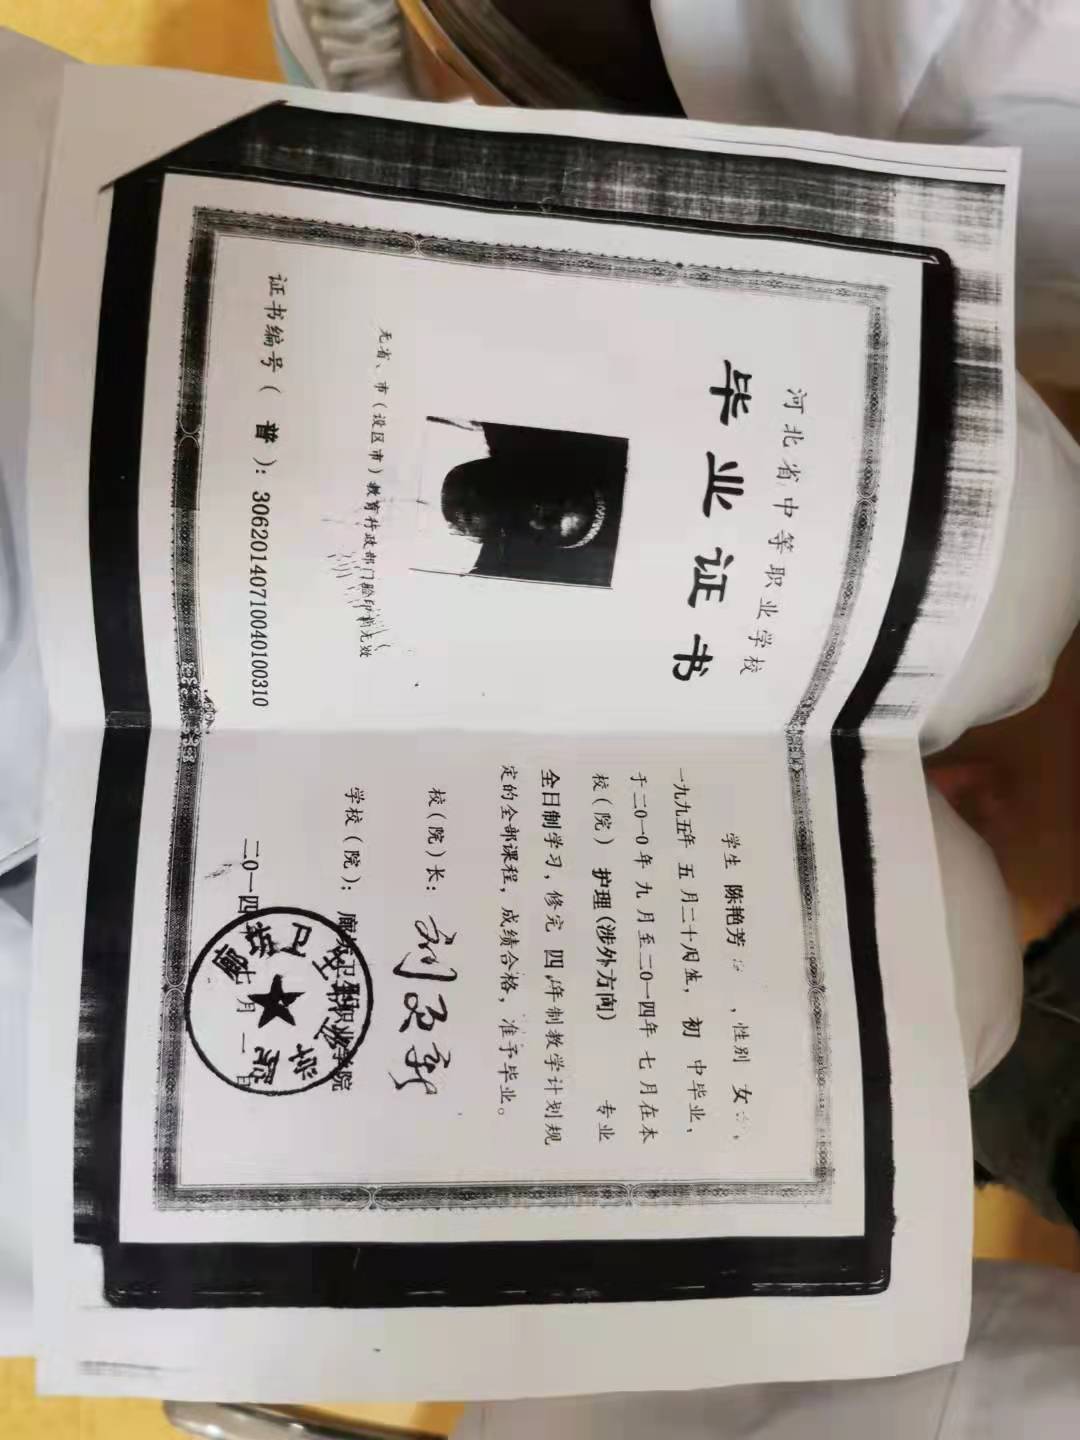 河北省中等职业学校
毕业证书
无省、市(设区市)教育行政部门验印者无效
证书编号(普):30620140710040100310
学生 陈艳芳 ,性别 女 ,
一九九五年 五月二十周生, 初 中毕业、
于二0一0年 九 月至二0一四年 七 月在本
校(院) 护理(涉外方向) 专业
全日制学习,修完 四 年制教学计划规
定的全部课程,成绩合格,准予毕业。
校(院)长:
学校(院): 廊坊卫生职业学院
二0一四年七月一日
廊坊卫生职业学院